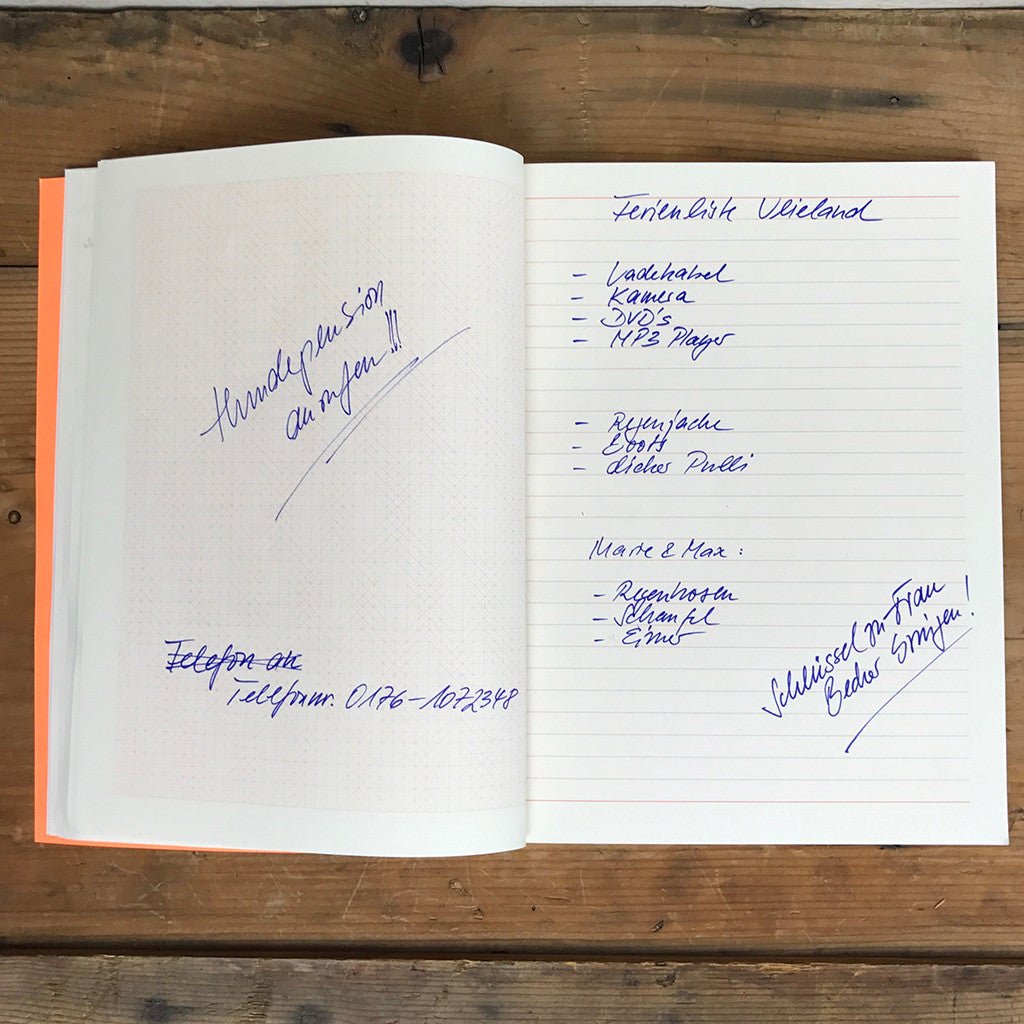 Hundepension
anrufen!!!
Telefon an
Telefonnr. 0176-1072348
Ferienliste Vlieland
- Ladekabel
- Kamera
- DVD's
- MP3 Player
- Regenjacke
- Boots
- dicker Pulli
Marie & Max:
- Regenhosen
- Schaufel
- Eimer
Schlüssel zu Frau
Becker bringen!